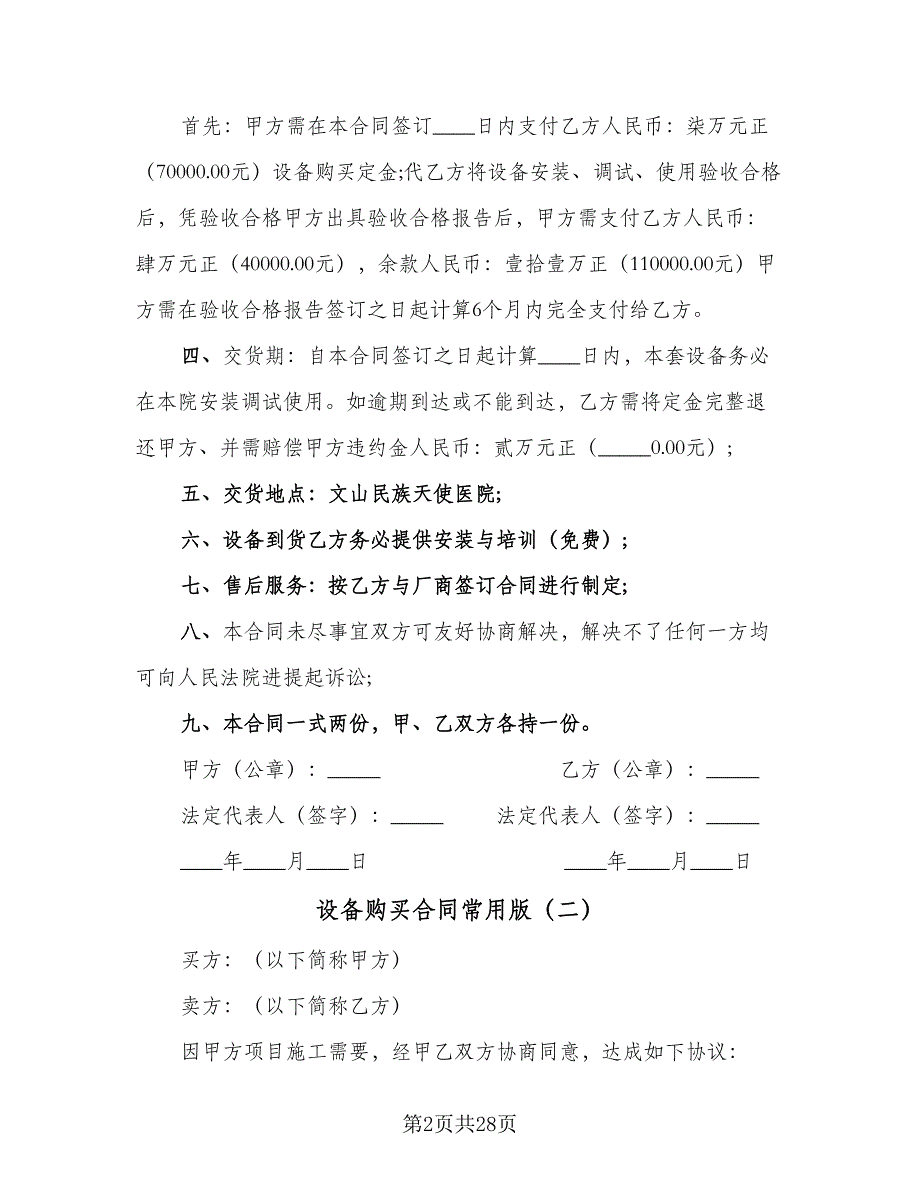 首先：甲方需在本合同签订____日内支付乙方人民币：柒万元正
（70000.00元）设备购买定金;代乙方将设备安装、调试、使用验收合格
后，凭验收合格甲方出具验收合格报告后，甲方需支付乙方人民币：
肆万元正（40000.00元），余款人民币：壹拾壹万正（110000.00元）甲
方需在验收合格报告签订之日起计算6个月内完全支付给乙方。
四、交货期：自本合同签订之日起计算____日内，本套设备务必
在本院安装调试使用。如逾期到达或不能到达，乙方需将定金完整退
还甲方、并需赔偿甲方违约金人民币：贰万元正（_____0.00元）;
五、交货地点：文山民族天使医院;
六、设备到货乙方务必提供安装与培训（免费）;
七、售后服务：按乙方与厂商签订合同进行制定;
八、本合同未尽事宜双方可友好协商解决，解决不了任何一方均
可向人民法院进提起诉讼;
九、本合同一式两份，甲、乙双方各持一份。
甲方（公章）：_____ 乙方（公章）：_____
法定代表人（签字）：_____ 法定代表人（签字）：_____
____年____月____日 ____年____月____日
设备购买合同常用版（二）
买方：（以下简称甲方）
卖方：（以下简称乙方）
因甲方项目施工需要，经甲乙双方协商同意，达成如下协议：
第2页共28页